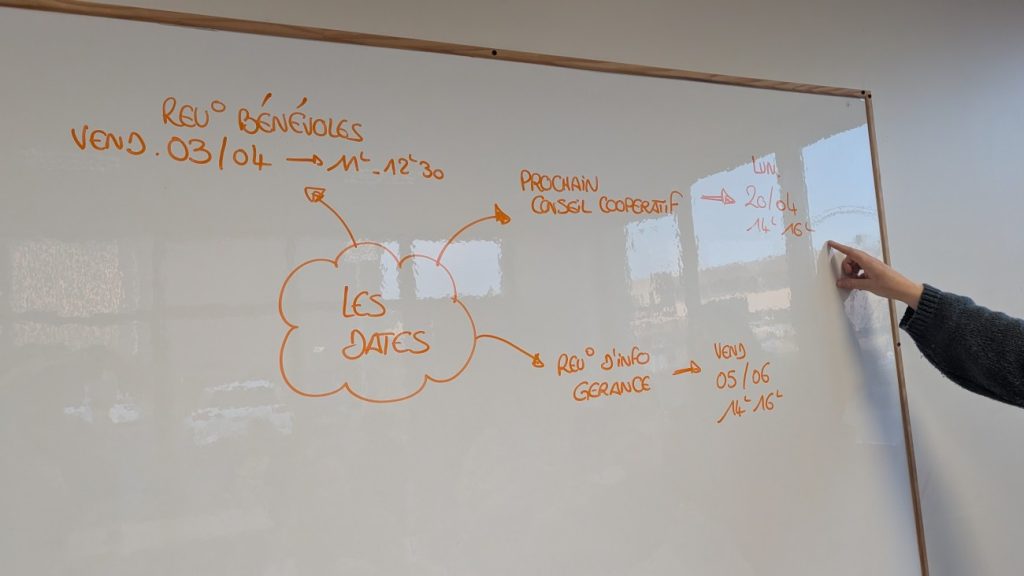 REU° BÉNÉVOLES
VEND. 03/04 → 11h - 12h30
PROCHAIN
CONSEIL COOPERATIF →
LUN.
20/04
14h 16h
LES
DATES
REU° D'INFO
GERANCE →
VEND
05/06
14h 16h